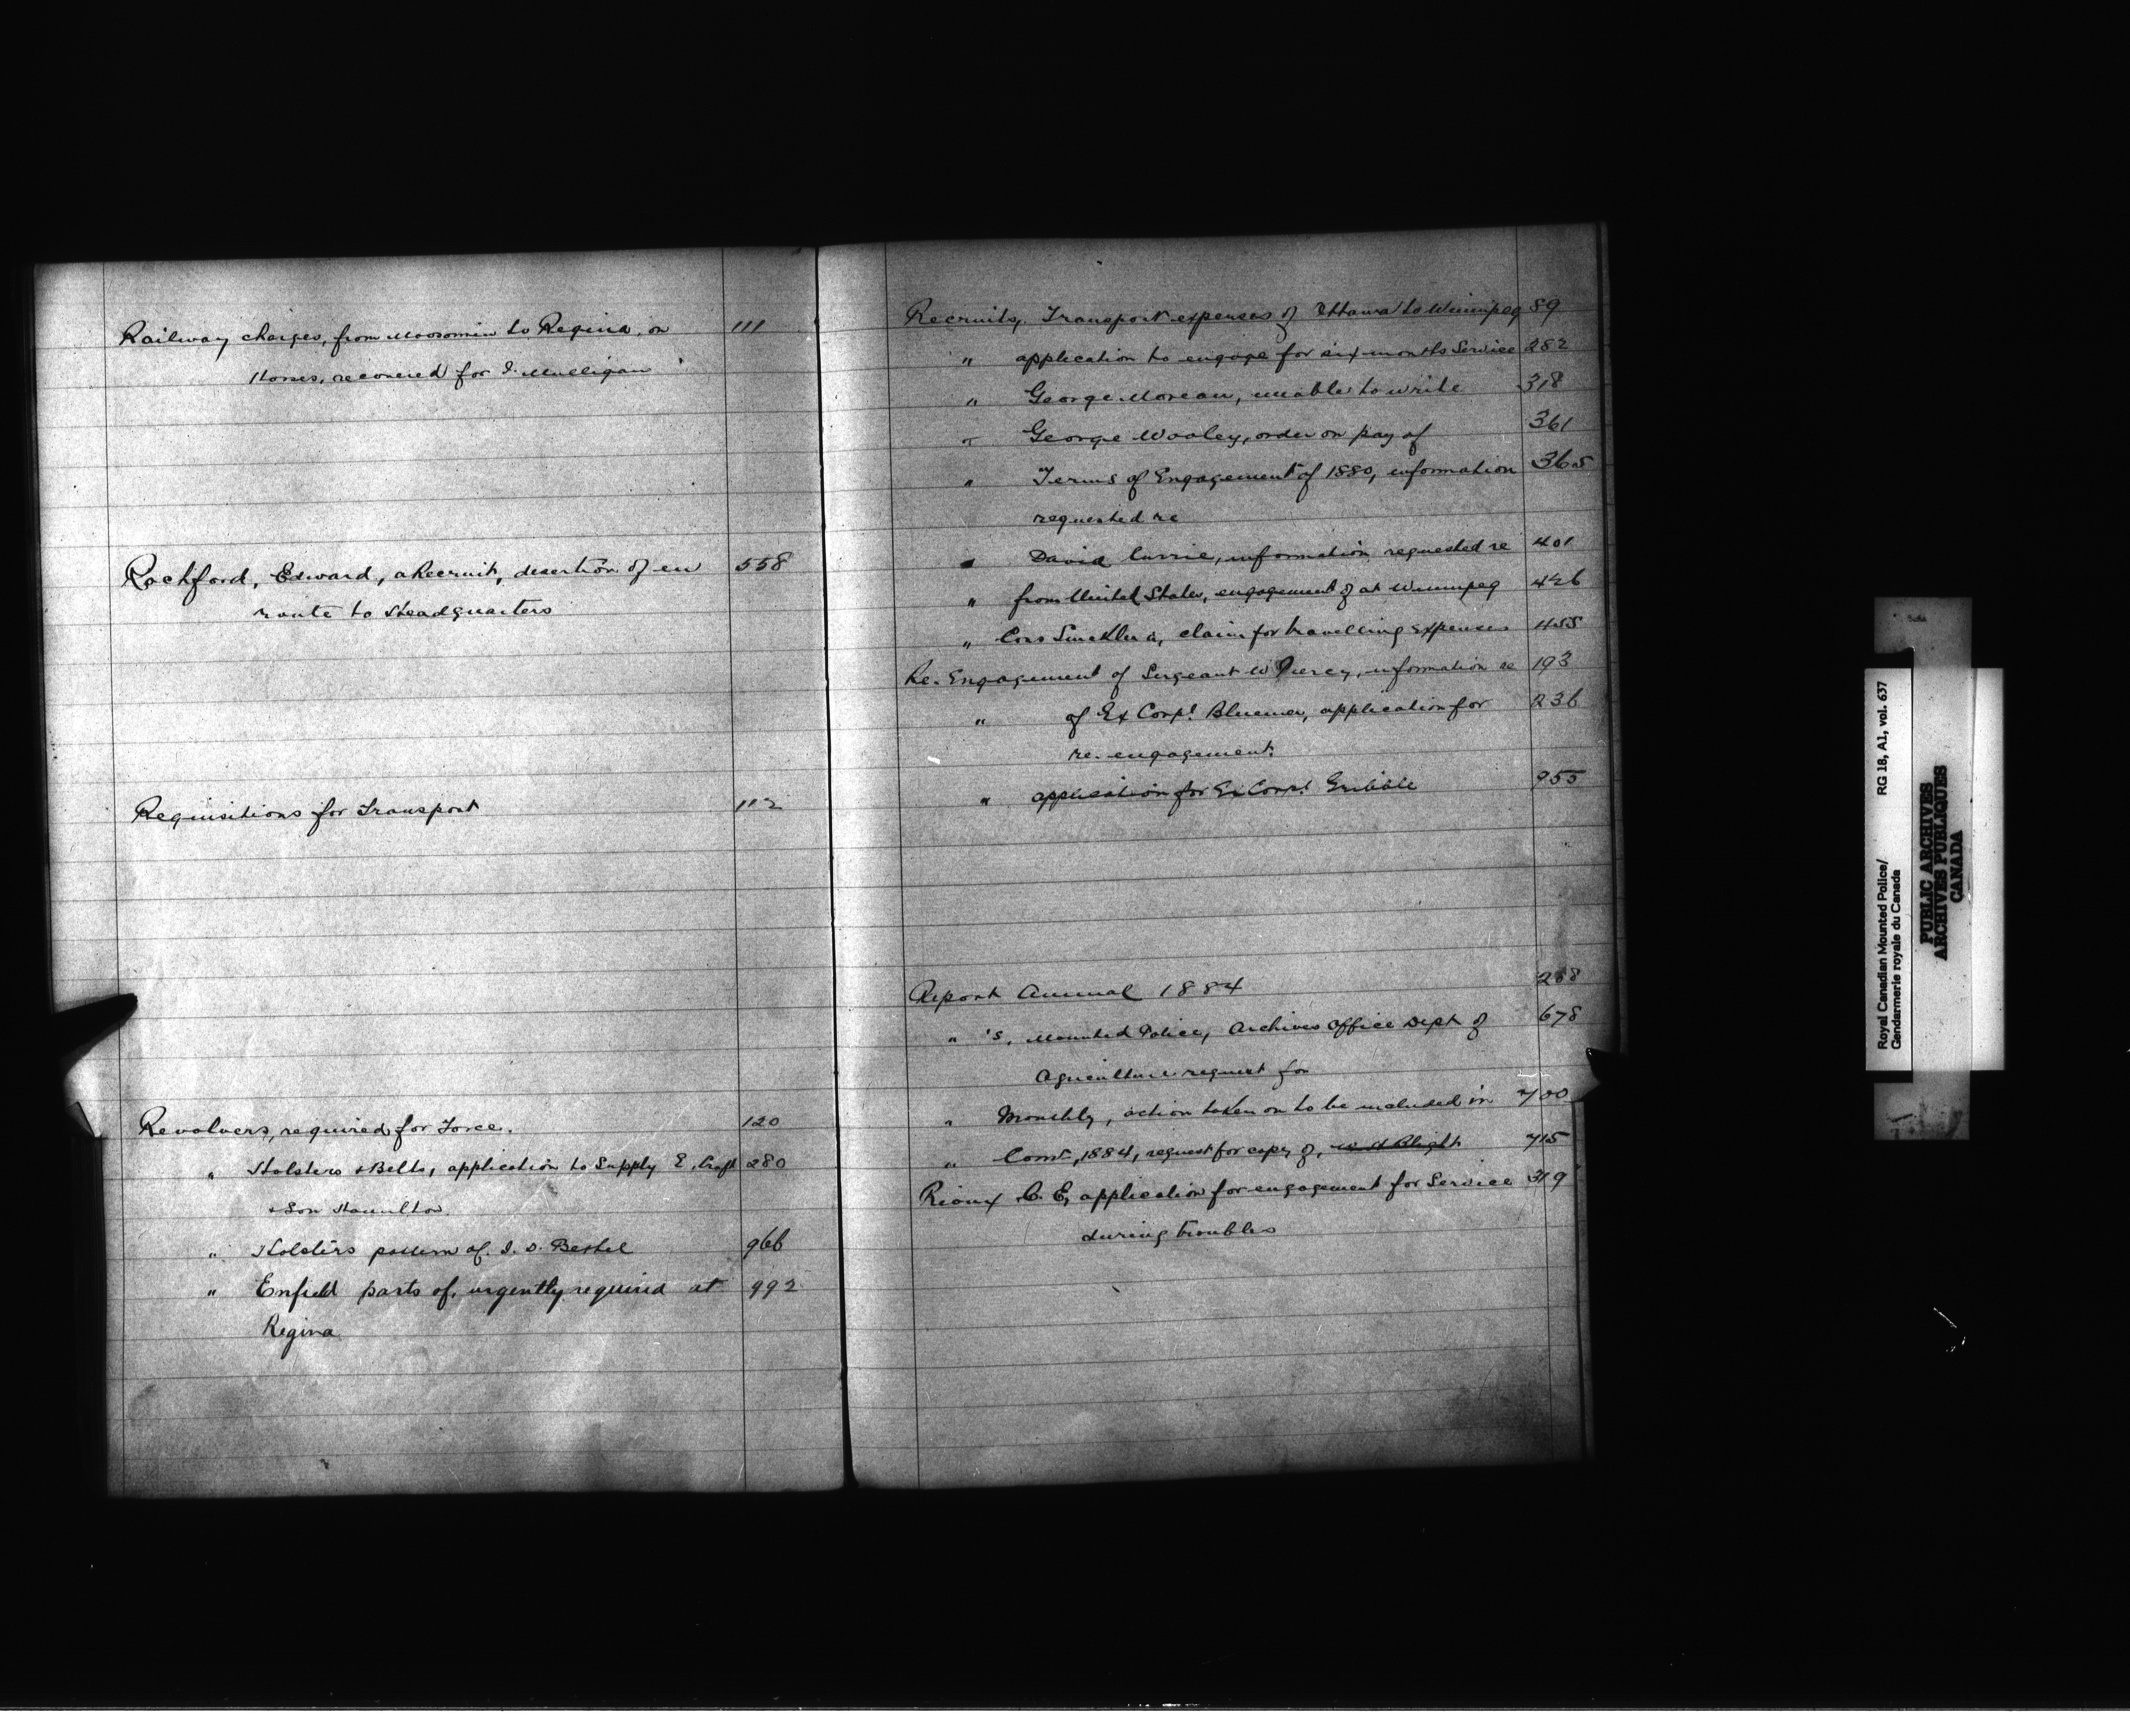 Railway charges, from Moosomin to Regina, on 111
Horses, recovered for J. Mulligan
Rochford, Edward, a Recruit, desertion of en 558
route to Headquarters
Requisitions for Transport 112
Revolvers, required for Force. 120
" Holsters & Belts, application to Supply E. Craft 280
& Son Hamilton.
" Holsters pattern of. J. D. Bethel 966
" Enfield parts of, urgently required at 992
Regina
Recruits, Transport expenses of Ottawa to Winnipeg 89
" application to engage for six months Service 282
" George Moreau, unable to write 318
" George Wooley, order on pay of 361
" Terms of Engagement of 1880, information 365
requested re
" David Currie, information requested re 401
" from United States, engagement of at Winnipeg 426
" claim for travelling expenses 455
Re-Engagement of Sergeant W Piercy, information re 193
" of Ex Corpl. application for 236
re-engagement.
" application for Ex Corpl. Gribble 955
Report Annual 1884 268
" 's, Mounted Police, Archives Office Dept of 678
Agriculture request for
" Monthly, action taken on to be included in 700
" Comr. 1884, request for copy of, W. A. Blight 715
Rioux C. E, application for engagement for Service 319
during troubles
Royal Canadian Mounted Police/ RG 18, A1, vol. 637
Gendarmerie royale du Canada
PUBLIC ARCHIVES
ARCHIVES PUBLIQUES
CANADA